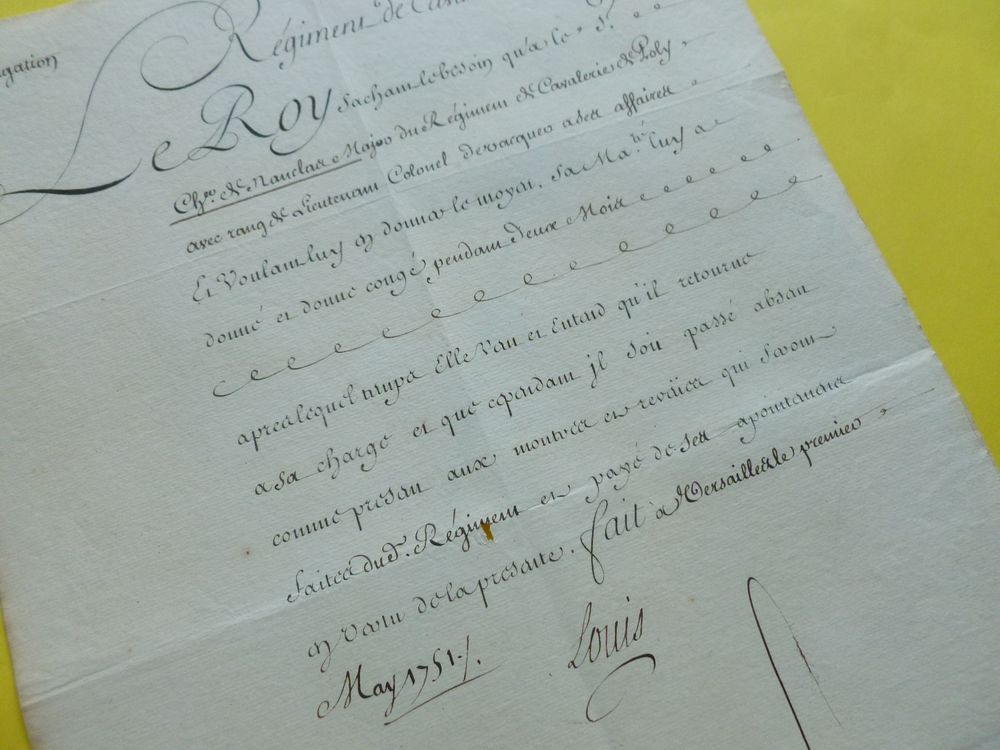 gation
Régiment de Cav
Le Roy sachant le besoin qu'a le S.r
Ch.er de Nanclas Major du Régiment de Cavalerie de Poly
avec rang de Lieutenant Colonel de vacquer a ses affaires
Et Voulant luy en donner le moyen, Sa Ma.té luy a
donné et donne congé pendant deux Mois
apres lequel temps Elle Veut et Entend qu'il retourne
a sa charge et que cependant il soit passé absent
comme présent aux montres et reveües qui seront
faites dud. Régiment et payé de ses apointemens
en vertu de la presente. fait a Versailles le premier
May 1751./.
Louis